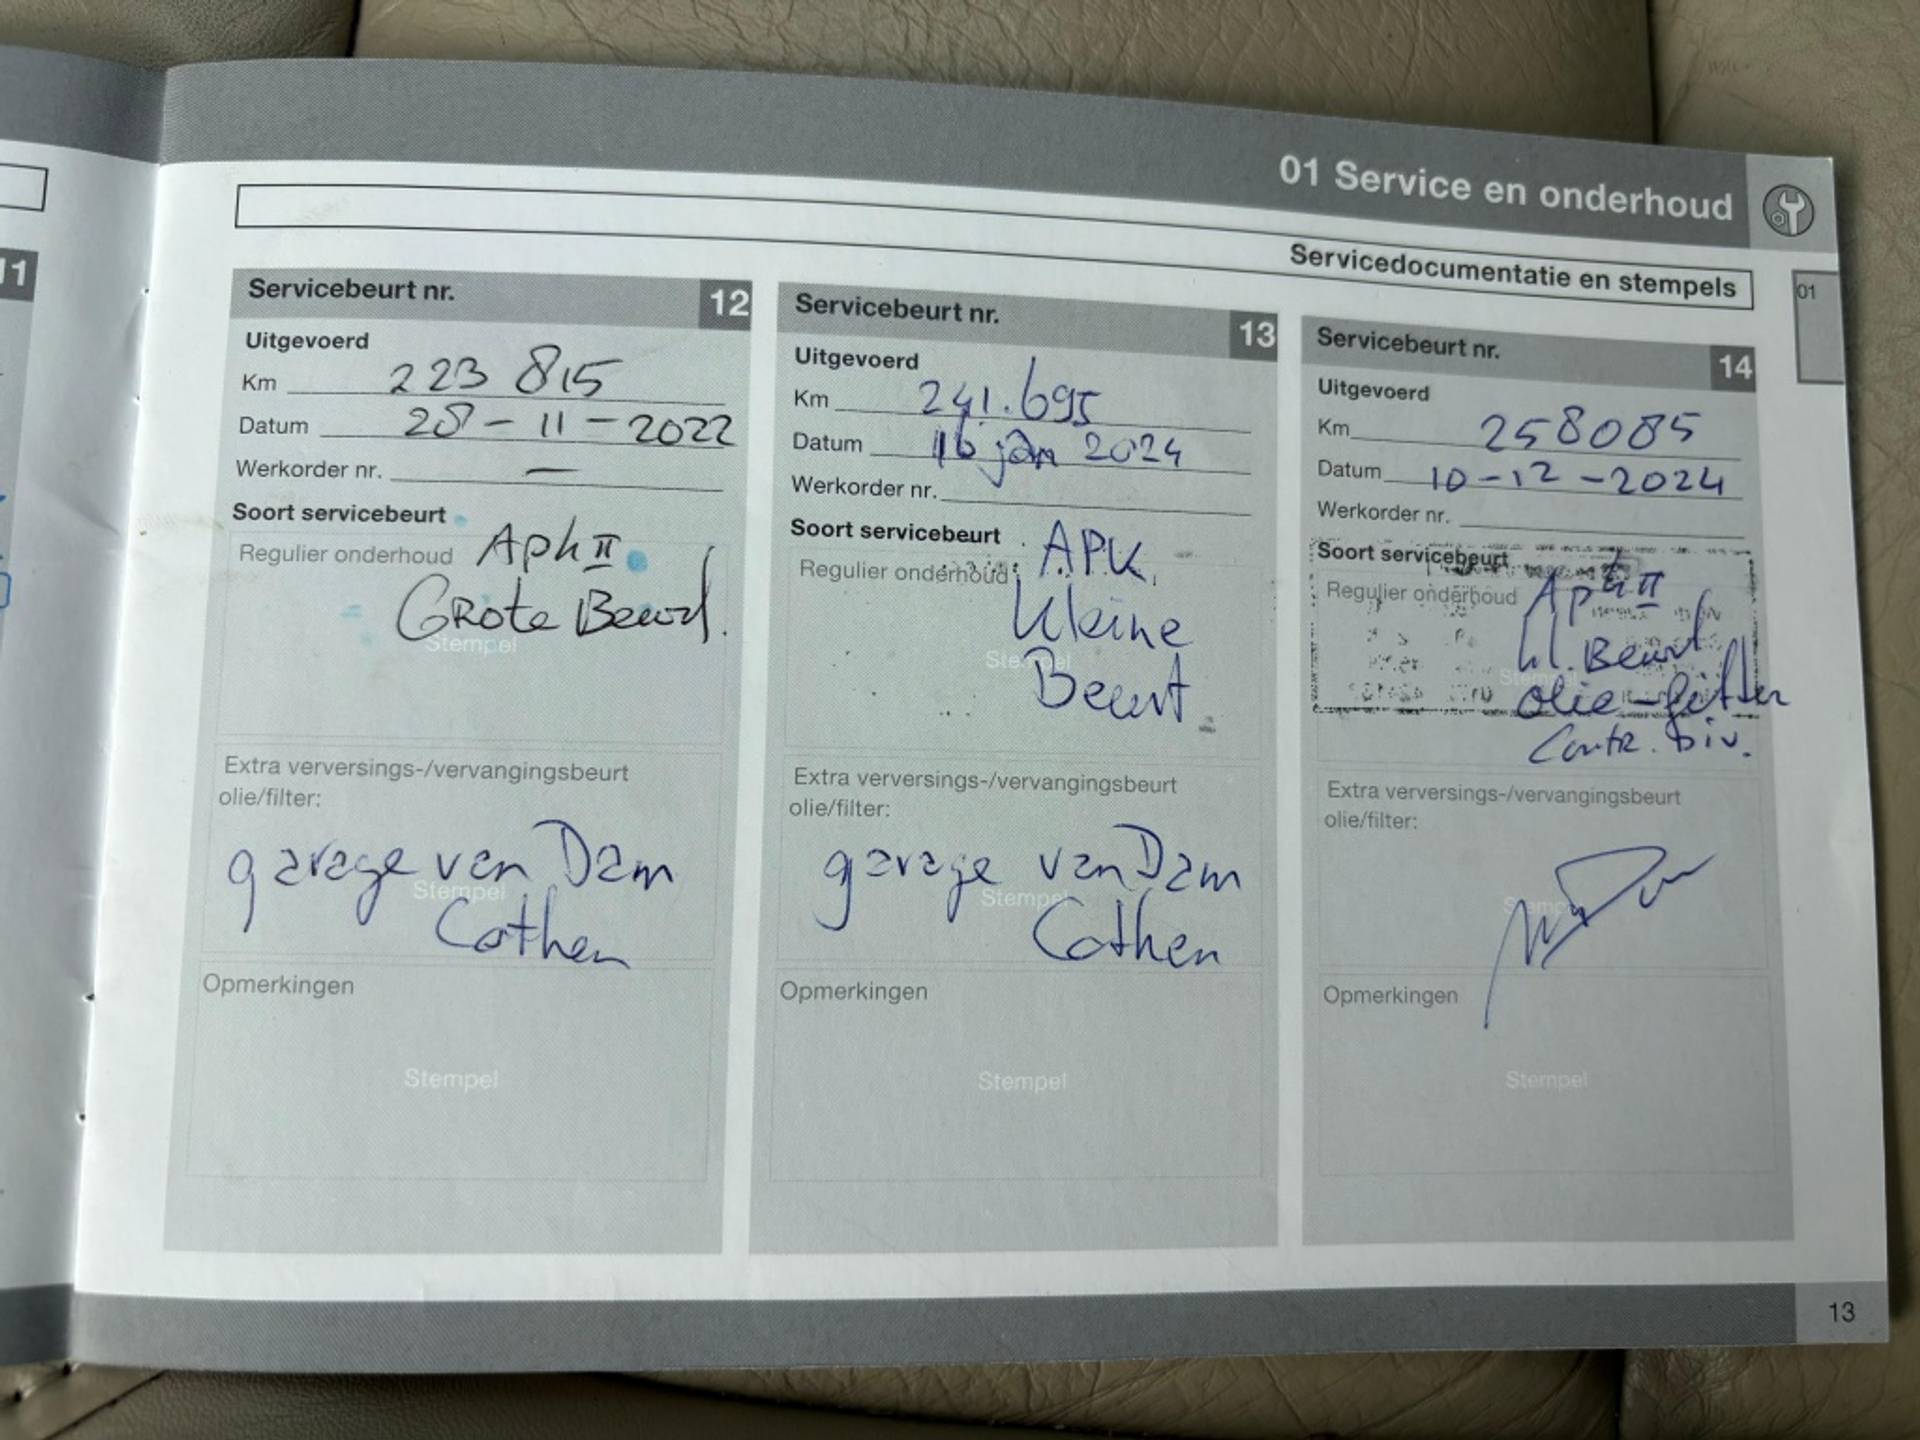 01 Service en onderhoud
Servicedocumentatie en stempels
01
11
Servicebeurt nr. 12
Uitgevoerd
Km 223 815
Datum 28-11-2022
Werkorder nr. —
Soort servicebeurt
Regulier onderhoud Apk II
Grote Beurt.
Stempel
Extra verversings-/vervangingsbeurt
olie/filter:
garage van Dam
Stempel
Cothen
Opmerkingen
Stempel
Servicebeurt nr. 13
Uitgevoerd
Km 241.695
Datum 16 jan 2024
Werkorder nr.
Soort servicebeurt APK.
Regulier onderhoud
Kleine
Stempel
Beurt
Extra verversings-/vervangingsbeurt
olie/filter:
garage van Dam
Stempel
Cothen
Opmerkingen
Stempel
Servicebeurt nr. 14
Uitgevoerd
Km 258085
Datum 10-12-2024
Werkorder nr.
Soort servicebeurt
Regulier onderhoud Apk II
kl. Beurt
Stempel
olie-filter
Contr. Div.
Extra verversings-/vervangingsbeurt
olie/filter:
Stempel
Opmerkingen
Stempel
13